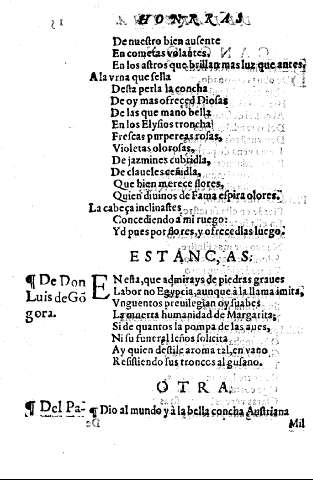 HONRRAS
De nuestro bien ausente
En cometas volantes,
En los astros que brillan mas luz que antes,
A la vrna que sella
Desta perla la concha
De oy mas ofreced Diosas
De las que mano bella
En los Elysios troncha
Frescas purpureas rosas,
Violetas olorosas,
De jazmines cubridla,
De claueles ceñidla,
Que bien merece flores,
Quien diuinos de Fama espira olores.
La cabeça inclinastes
Concediendo à mi ruego:
Yd pues por flores, y ofrecedlas luego.
ESTANCIAS.
¶ De Don Luis de Gõgora.
EN esta, que admirays de piedras graues
Labor no Egypcia, aunque à la llama imita,
Vnguentos preuilegian oy suabes
La muerta humanidad de Margarita;
Si de quantos la pompa de las aues,
Ni su funeral leños solicita
Ay quien destile aroma tal, en vano
Resistiendo sus troncos al gusano.
OTRA.
¶ Del Pa-
¶ Dio al mundo y à la bella concha Austriana
Mil